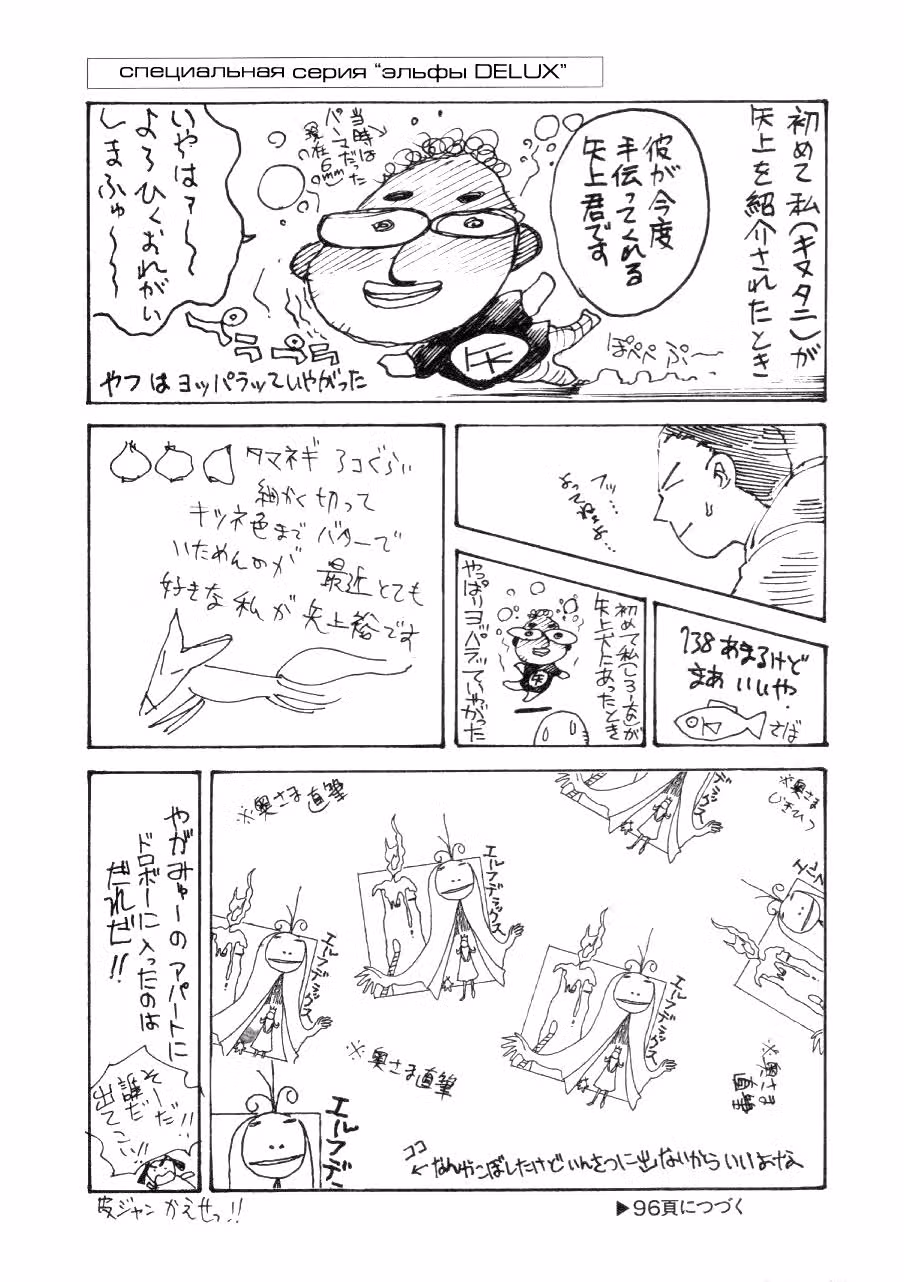 специальная серия "эльфы DELUX"
初めて私(キヌタニ)が
矢上を紹介されたとき
彼が今度
手伝ってくれる
矢上君です
当時は
パーマだった
現在
6mm
いやはァ〜〜
よろひくおれがい
しまふゅ〜〜
ぽぺぺ ぷ〜〜
矢
やつはヨッパラッていやがった
フッ…
よって
タマネギ 3コぐらい
細かく切って
キツネ色まで バターで
いためんのが 最近とても
好きな私が矢上裕です
138あまるけど
まあいいや.
さば
矢上犬にあったとき
やっぱりヨッパラッていやがった
※奥さま直筆
※奥さま
じきひつ
エルフデラックス
エルフデラックス
エルフデラックス
エルフデラックス
※奥さま直筆
※奥さま
直筆
エルフデ
ココ
←なんかこぼしたけどいんさつに出ないからいいよな
やがみゅーのアパートに
ドロボーに入ったのは
だれだ!!
そーだ!!
誰だ!!
出てこい!!
皮ジャンかえせっ!!
▶96頁につづく